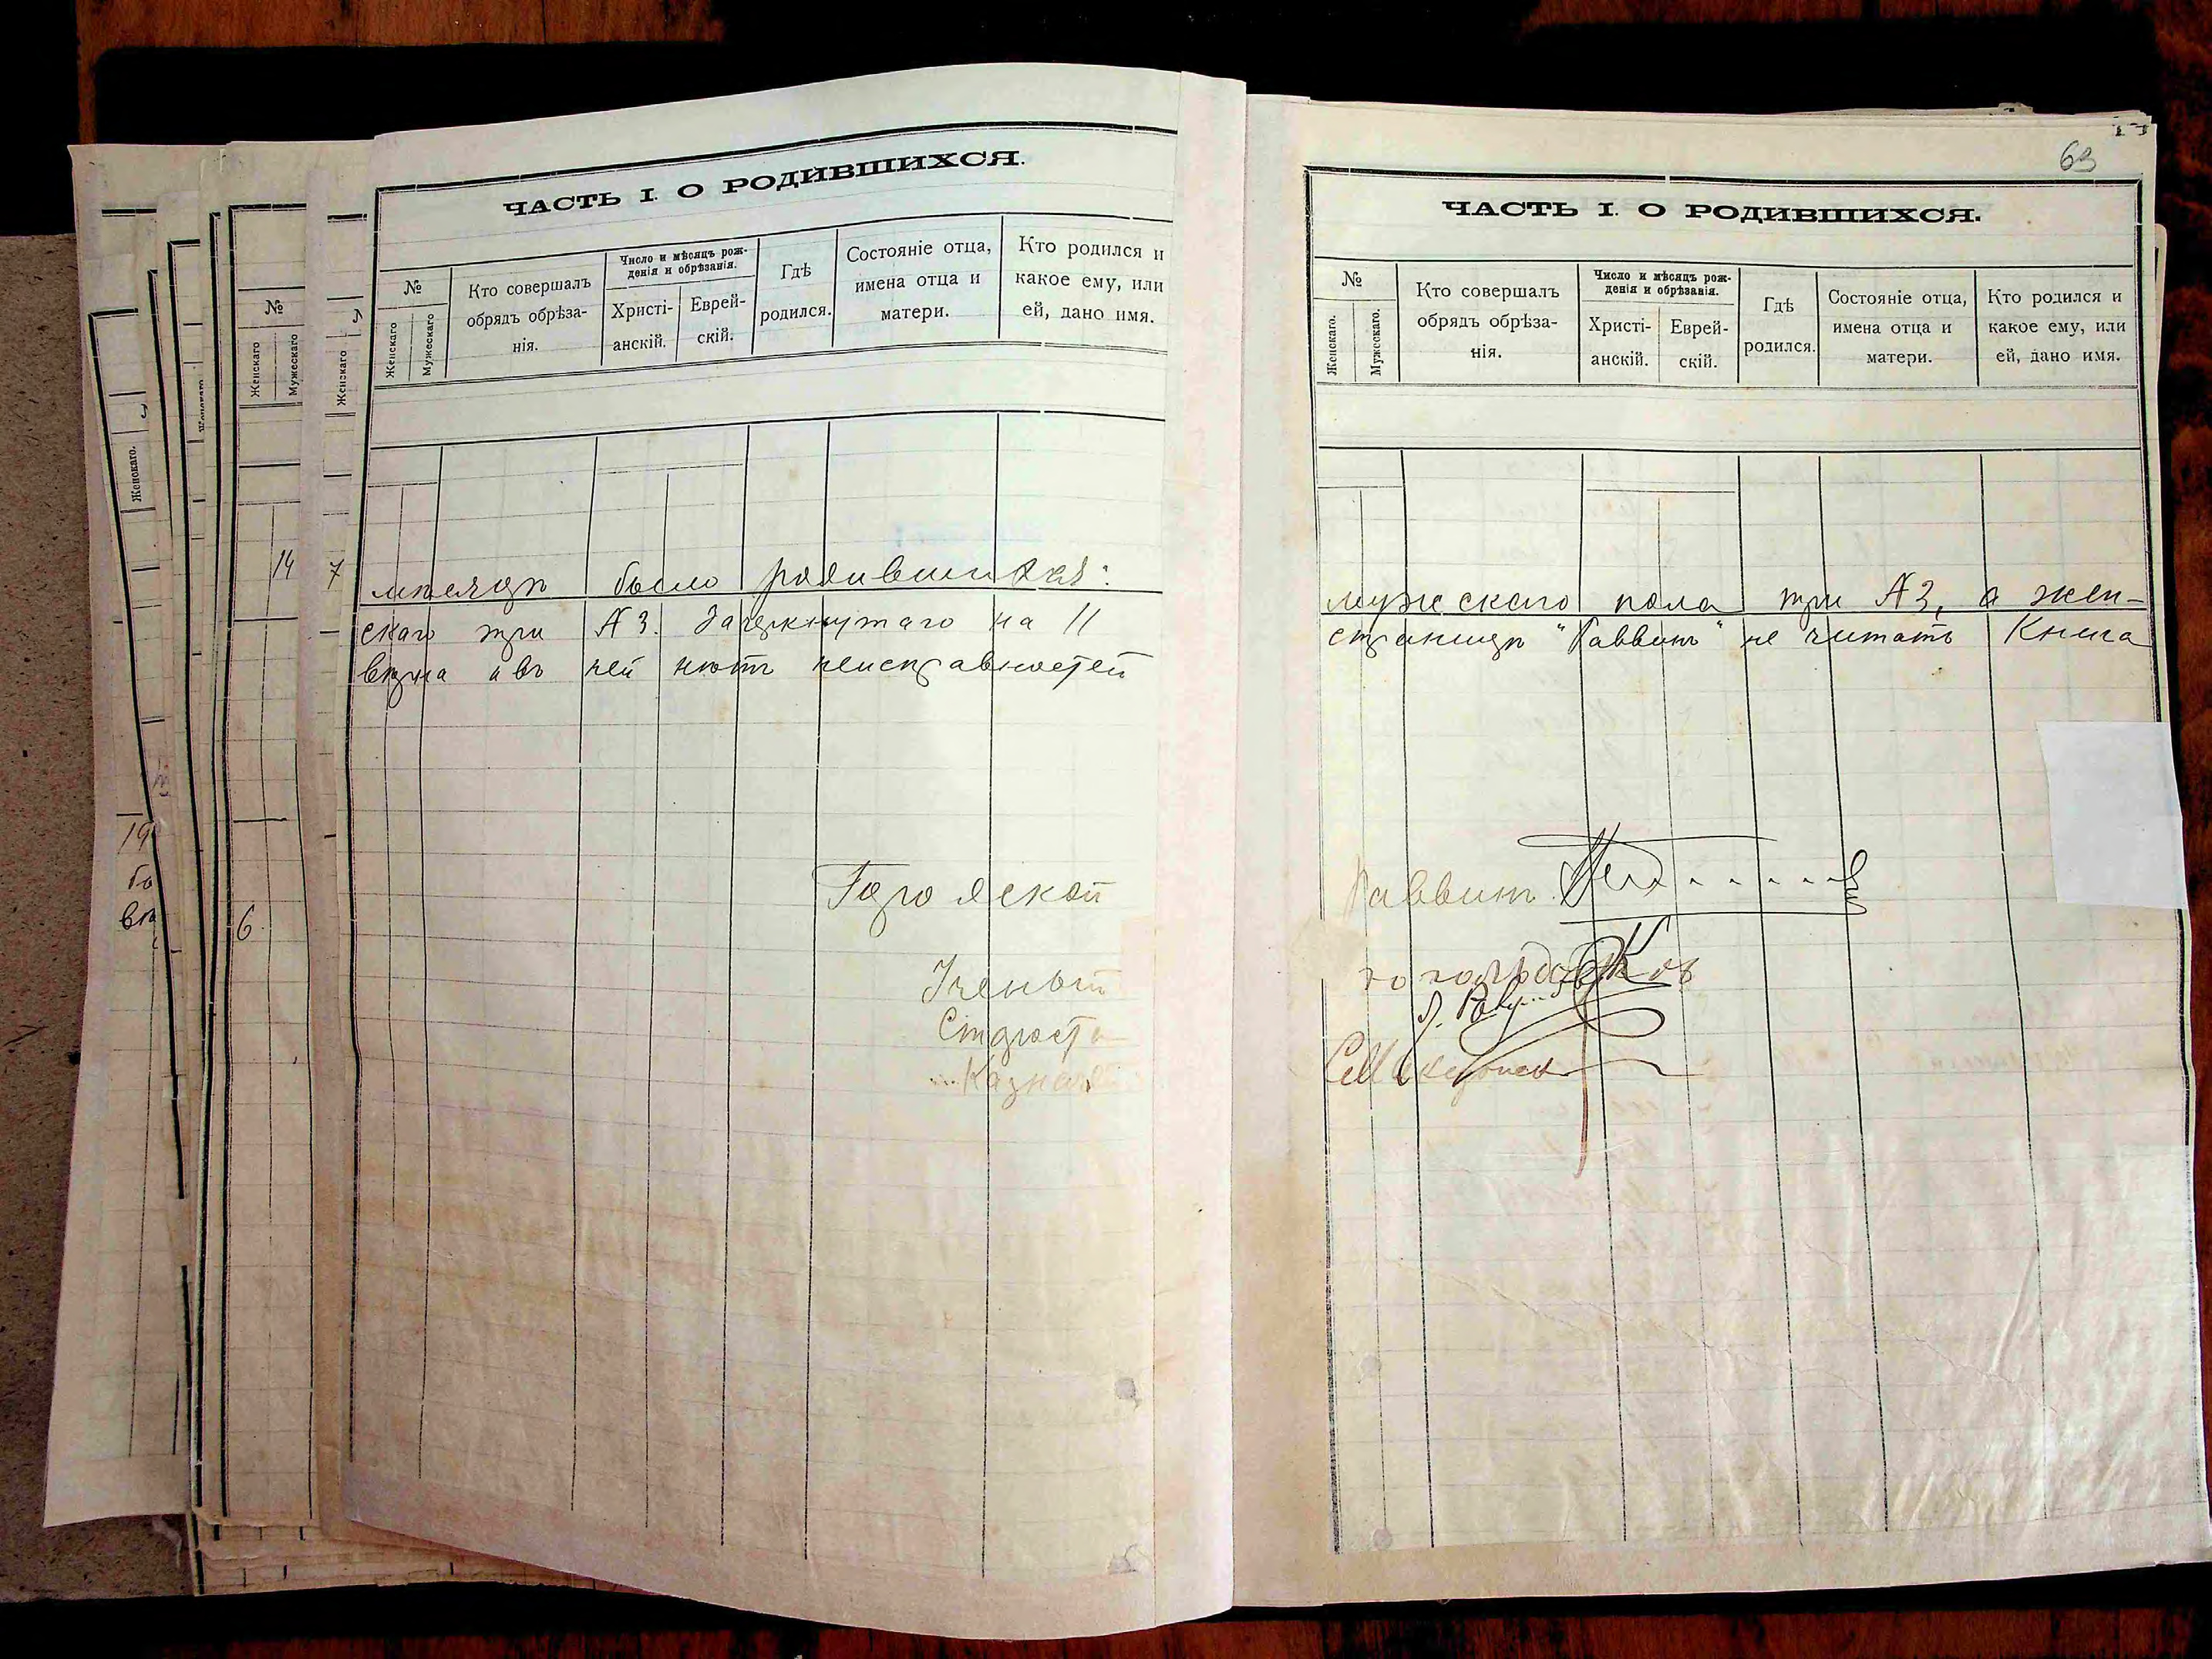 ЧАСТЬ I. О РОДИВШИХСЯ.
№
Женскаго
Мужескаго
Кто совершалъ
обрядъ обрѣза-
нія.
Число и мѣсяцъ рож-
денія и обрѣзанія.
Христі-
анскій.
Еврей-
скій.
Гдѣ
родился.
Состояніе отца,
имена отца и
матери.
Кто родился и
какое ему, или
ей, дано имя.
мѣсяцѣ было родившихся:
скаго три №3. Зачеркнутаго на 11
вѣрна и въ ней нѣтъ неисправностей
Городской
Ученый
Староста
Казначей
63
ЧАСТЬ I. О РОДИВШИХСЯ.
№
Женскаго.
Мужескаго.
Кто совершалъ
обрядъ обрѣза-
нія.
Число и мѣсяцъ рож-
денія и обрѣзанія.
Христі-
анскій.
Еврей-
скій.
Гдѣ
родился.
Состояніе отца,
имена отца и
матери.
Кто родился и
какое ему, или
ей, дано имя.
мужескаго пола три №3, а жен-
страницѣ "Раввинъ" не читать Книга
Раввинъ
№
Женскаго
Мужескаго
14
7
Женскаго
Женскаго.
19
6